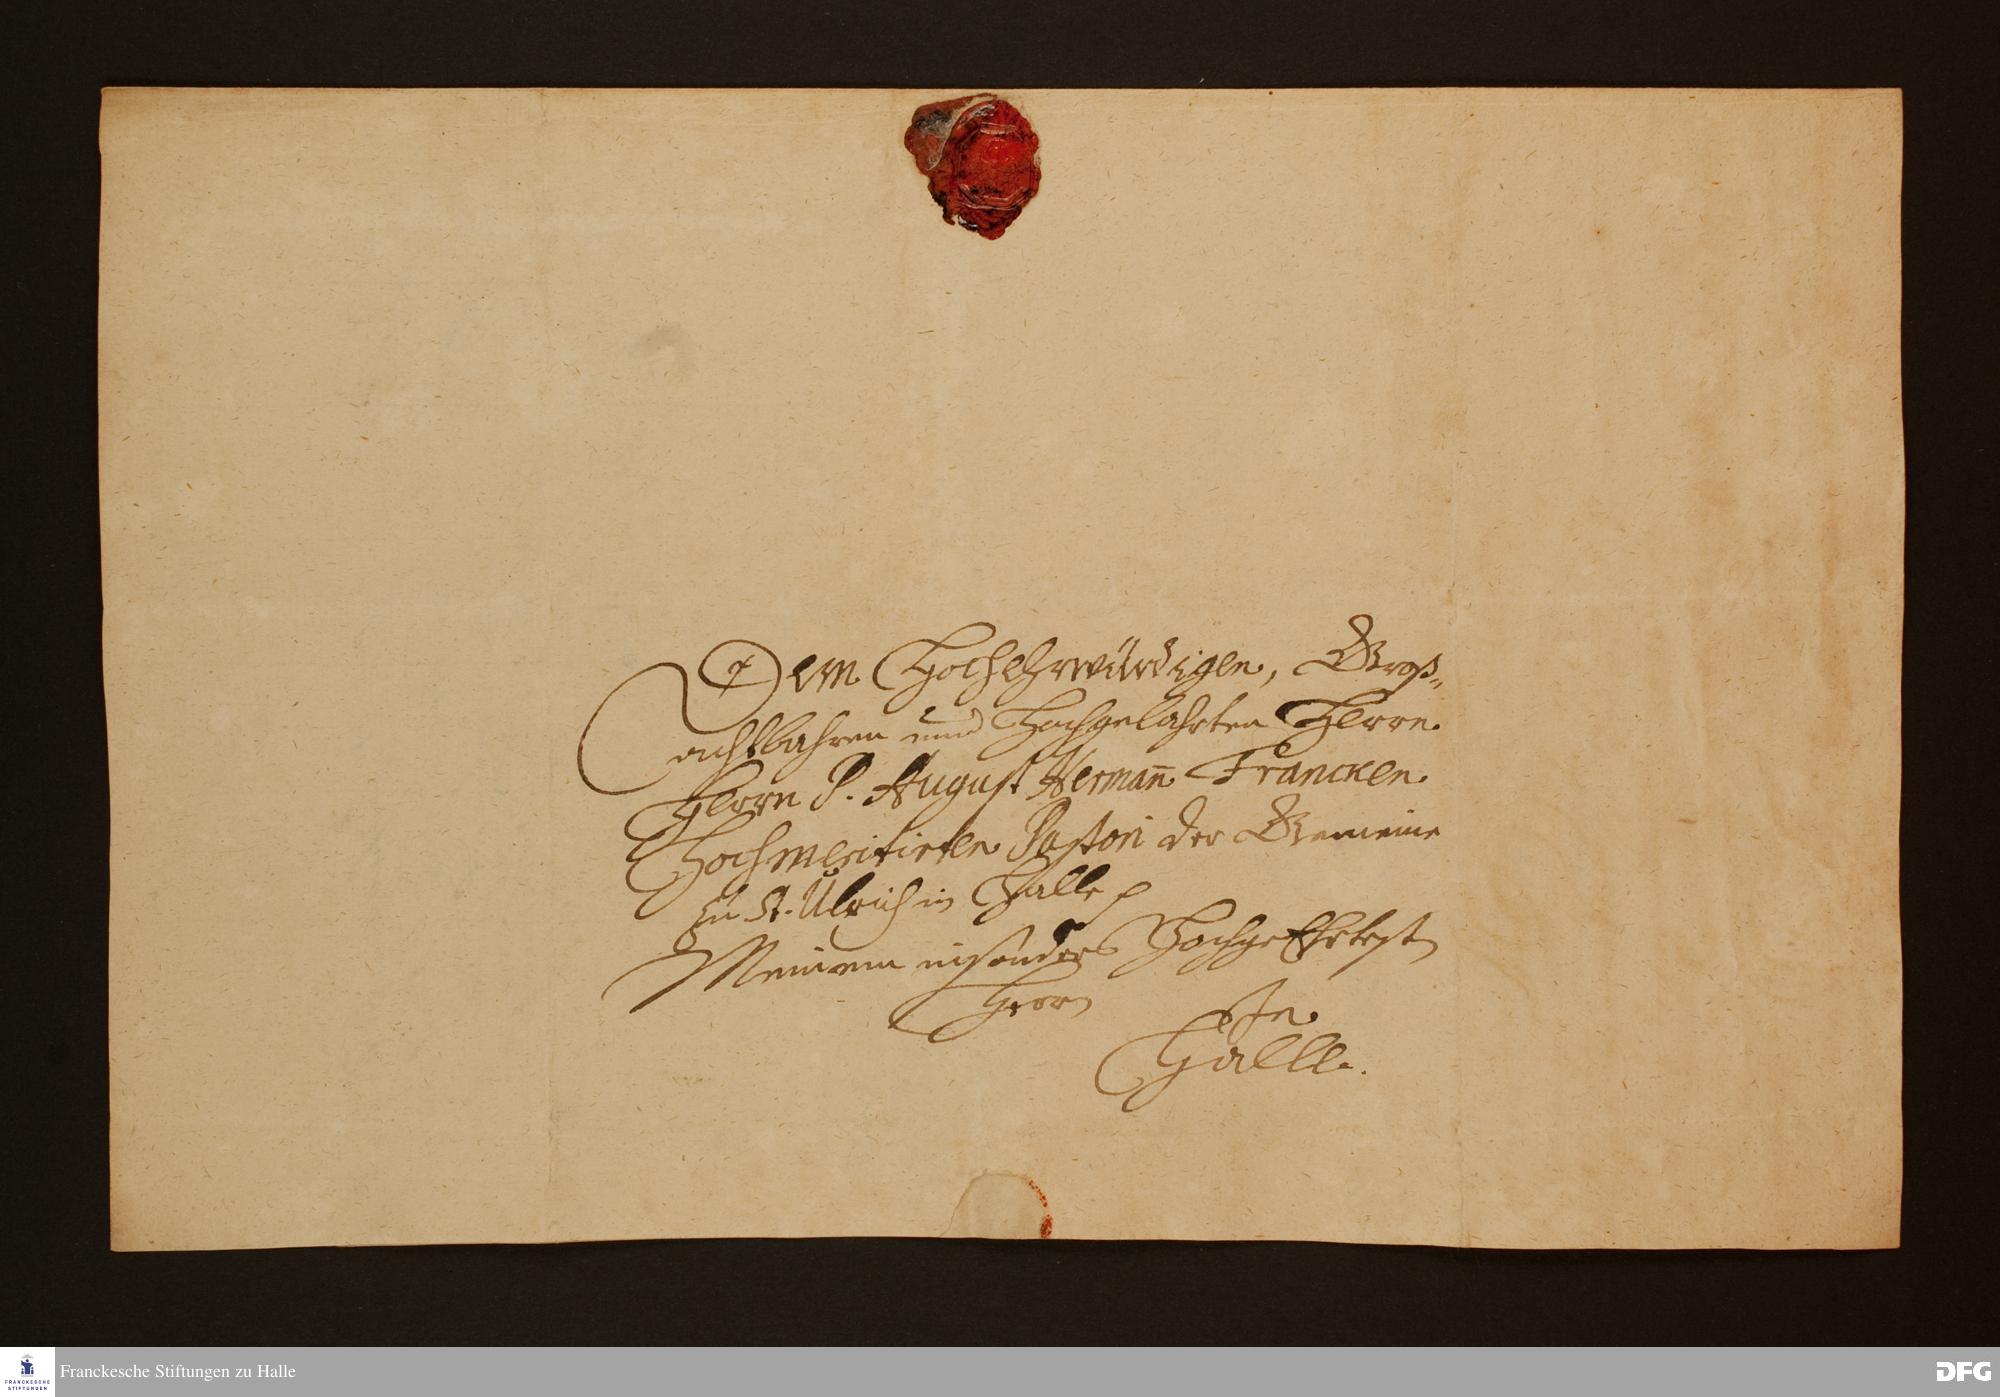 Dem Hochehrwürdigen, Groß„
achtbahren und Hochgelahrten Herrn
Herrn P. August Hermañ Francken
Hochmeritirten Pastori der Gemeine
zu St. Ulrich in Halle
Meinem insonders HochgeEhrtest
Herrn
In
Halle.
FRANCKESCHE
STIFTUNGEN
Franckesche Stiftungen zu Halle
DFG